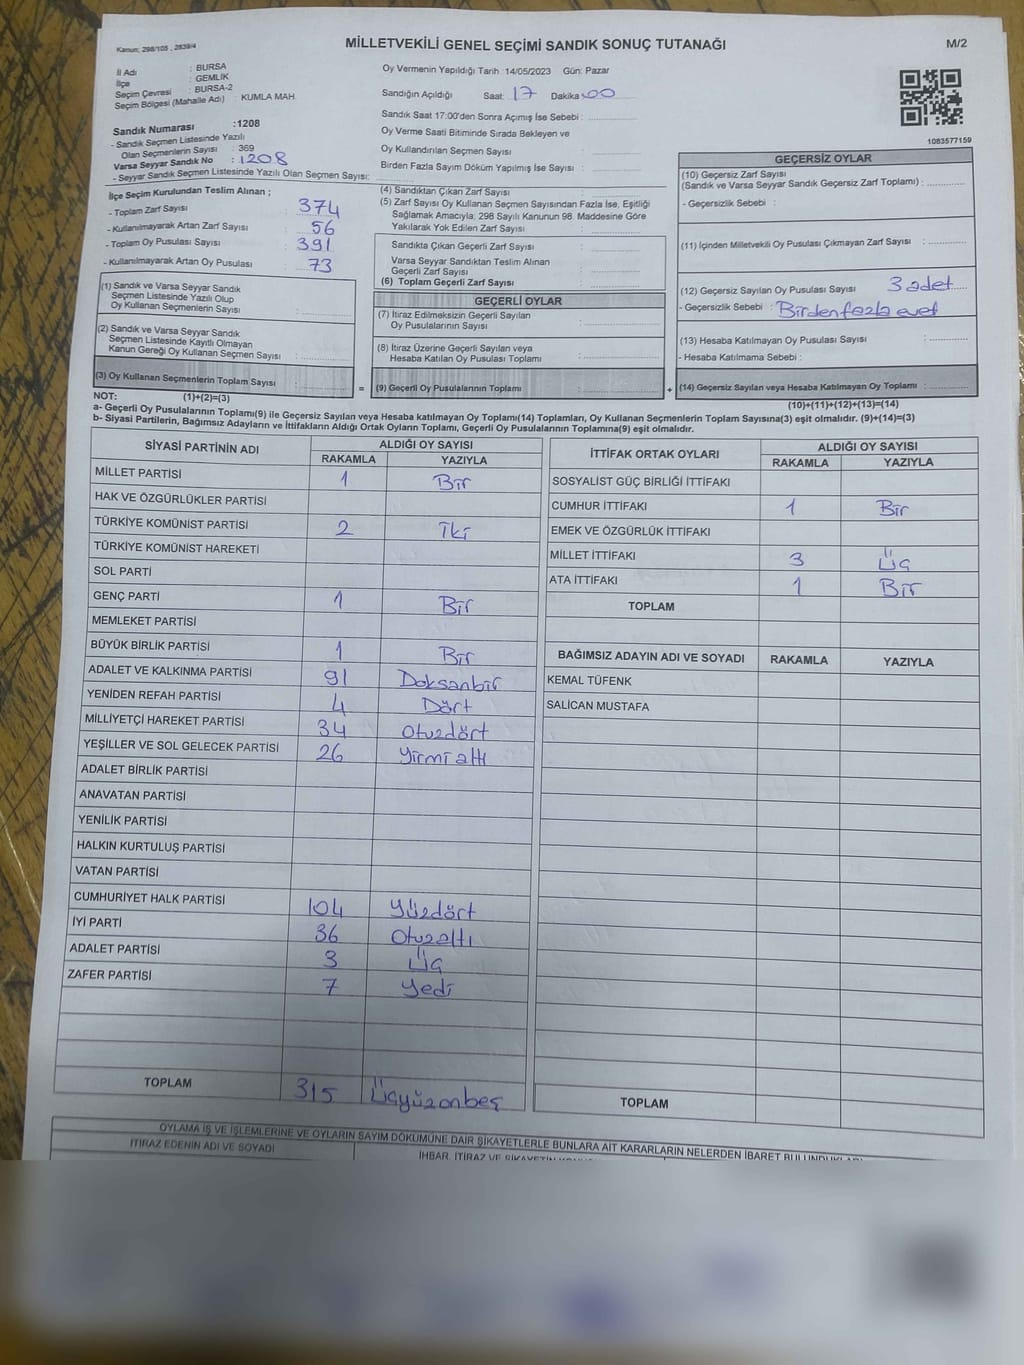 Kanun; 298/105 , 2839/4
MİLLETVEKİLİ GENEL SEÇİMİ SANDIK SONUÇ TUTANAĞI
M/2
İl Adı : BURSA
İlçe : GEMLİK
Seçim Çevresi : BURSA-2
Seçim Bölgesi (Mahalle Adı) : KUMLA MAH.
Sandık Numarası :1208
- Sandık Seçmen Listesinde Yazılı
Olan Seçmenlerin Sayısı : 369
Varsa Seyyar Sandık No : 1208
- Seyyar Sandık Seçmen Listesinde Yazılı Olan Seçmen Sayısı:
Oy Vermenin Yapıldığı Tarih :14/05/2023 Gün: Pazar
Sandığın Açıldığı Saat: 17 Dakika 00
Sandık Saat 17:00'den Sonra Açımış İse Sebebi :
Oy Verme Saati Bitiminde Sırada Bekleyen ve
Oy Kullandırılan Seçmen Sayısı :
Birden Fazla Sayım Döküm Yapılmış İse Sayısı :
1083577159
İlçe Seçim Kurulundan Teslim Alınan ;
- Toplam Zarf Sayısı : 374
- Kullanılmayarak Artan Zarf Sayısı : 56
- Toplam Oy Pusulası Sayısı : 391
- Kullanılmayarak Artan Oy Pusulası : 73
(1) Sandık ve Varsa Seyyar Sandık
Seçmen Listesinde Yazılı Olup
Oy Kullanan Seçmenlerin Sayısı :
(2) Sandık ve Varsa Seyyar Sandık
Seçmen Listesinde Kayıtlı Olmayan
Kanun Gereği Oy Kullanan Seçmen Sayısı :
(3) Oy Kullanan Seçmenlerin Toplam Sayısı :
(4) Sandıktan Çıkan Zarf Sayısı :
(5) Zarf Sayısı Oy Kullanan Seçmen Sayısından Fazla İse, Eşitliği
Sağlamak Amacıyla, 298 Sayılı Kanunun 98. Maddesine Göre
Yakılarak Yok Edilen Zarf Sayısı :
Sandıkta Çıkan Geçerli Zarf Sayısı :
Varsa Seyyar Sandıktan Teslim Alınan
Geçerli Zarf Sayısı :
(6) Toplam Geçerli Zarf Sayısı :
GEÇERLİ OYLAR
(7) İtiraz Edilmeksizin Geçerli Sayılan
Oy Pusulalarının Sayısı :
(8) İtiraz Üzerine Geçerli Sayılan veya
Hesaba Katılan Oy Pusulası Toplamı :
= (9) Geçerli Oy Pusulalarının Toplamı :
GEÇERSİZ OYLAR
(10) Geçersiz Zarf Sayısı
(Sandık ve Varsa Seyyar Sandık Geçersiz Zarf Toplamı) :
- Geçersizlik Sebebi :
(11) İçinden Milletvekili Oy Pusulası Çıkmayan Zarf Sayısı :
(12) Geçersiz Sayılan Oy Pusulası Sayısı : 3 adet
- Geçersizlik Sebebi : Birden fazla evet
(13) Hesaba Katılmayan Oy Pusulası Sayısı :
- Hesaba Katılmama Sebebi :
+ (14) Geçersiz Sayılan veya Hesaba Katılmayan Oy Toplamı :
NOT: (1)+(2)=(3)
(10)+(11)+(12)+(13)=(14)
a- Geçerli Oy Pusulalarının Toplamı(9) ile Geçersiz Sayılan veya Hesaba katılmayan Oy Toplamı(14) Toplamları, Oy Kullanan Seçmenlerin Toplam Sayısına(3) eşit olmalıdır. (9)+(14)=(3)
b- Siyasi Partilerin, Bağımsız Adayların ve İttifakların Aldığı Ortak Oyların Toplamı, Geçerli Oy Pusulalarının Toplamına(9) eşit olmalıdır.
SİYASİ PARTİNİN ADI ALDIĞI OY SAYISI
RAKAMLA YAZIYLA
MİLLET PARTİSİ 1 Bir
HAK VE ÖZGÜRLÜKLER PARTİSİ
TÜRKİYE KOMÜNİST PARTİSİ 2 İki
TÜRKİYE KOMÜNİST HAREKETİ
SOL PARTİ
GENÇ PARTİ 1 Bir
MEMLEKET PARTİSİ
BÜYÜK BİRLİK PARTİSİ 1 Bir
ADALET VE KALKINMA PARTİSİ 91 Doksanbir
YENİDEN REFAH PARTİSİ 4 Dört
MİLLİYETÇİ HAREKET PARTİSİ 34 Otuzdört
YEŞİLLER VE SOL GELECEK PARTİSİ 26 Yirmi altı
ADALET BİRLİK PARTİSİ
ANAVATAN PARTİSİ
YENİLİK PARTİSİ
HALKIN KURTULUŞ PARTİSİ
VATAN PARTİSİ
CUMHURİYET HALK PARTİSİ 104 Yüzdört
İYİ PARTİ 36 Otuzaltı
ADALET PARTİSİ 3 Üç
ZAFER PARTİSİ 7 Yedi
TOPLAM 315 Üçyüzonbeş
İTTİFAK ORTAK OYLARI ALDIĞI OY SAYISI
RAKAMLA YAZIYLA
SOSYALİST GÜÇ BİRLİĞİ İTTİFAKI
CUMHUR İTTİFAKI 1 Bir
EMEK VE ÖZGÜRLÜK İTTİFAKI
MİLLET İTTİFAKI 3 Üç
ATA İTTİFAKI 1 Bir
TOPLAM
BAĞIMSIZ ADAYIN ADI VE SOYADI RAKAMLA YAZIYLA
KEMAL TÜFENK
SALİCAN MUSTAFA
TOPLAM
OYLAMA İŞ VE İŞLEMLERİNE VE OYLARIN SAYIM DÖKÜMÜNE DAİR ŞİKAYETLERLE BUNLARA AİT KARARLARIN NELERDEN İBARET
İTİRAZ EDENİN ADI VE SOYADI
İHBAR, İTİRAZ VE